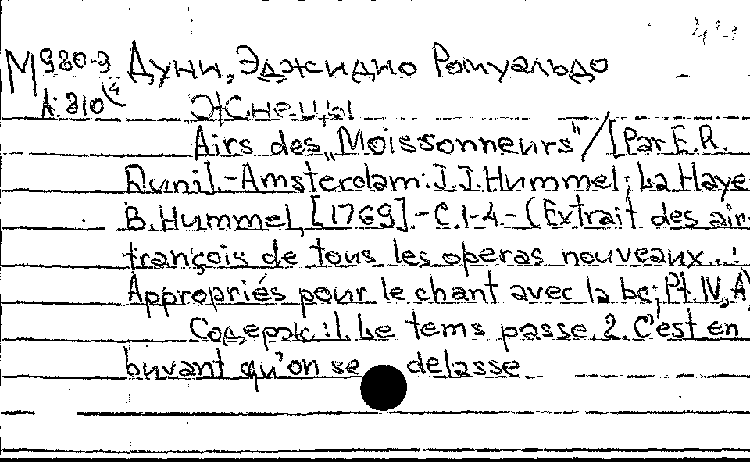 М 980-9 Дуни, Эджидио Ромуальдо
А: 310 Жнецы
Airs des „Moissonneurs" / [Par E.R.
Duni]. - Amsterdam: J.J. Hummel; La Haye
B. Hummel, [1769]. - С. 1-4 - (Extrait des air-
françois de tous les operas nouveaux...:
Appropriés pour le chant avec la bc; Pt. IV, A)
Содерж.: 1. Le tems passe. 2. C'est en
buvant qu'on se delasse